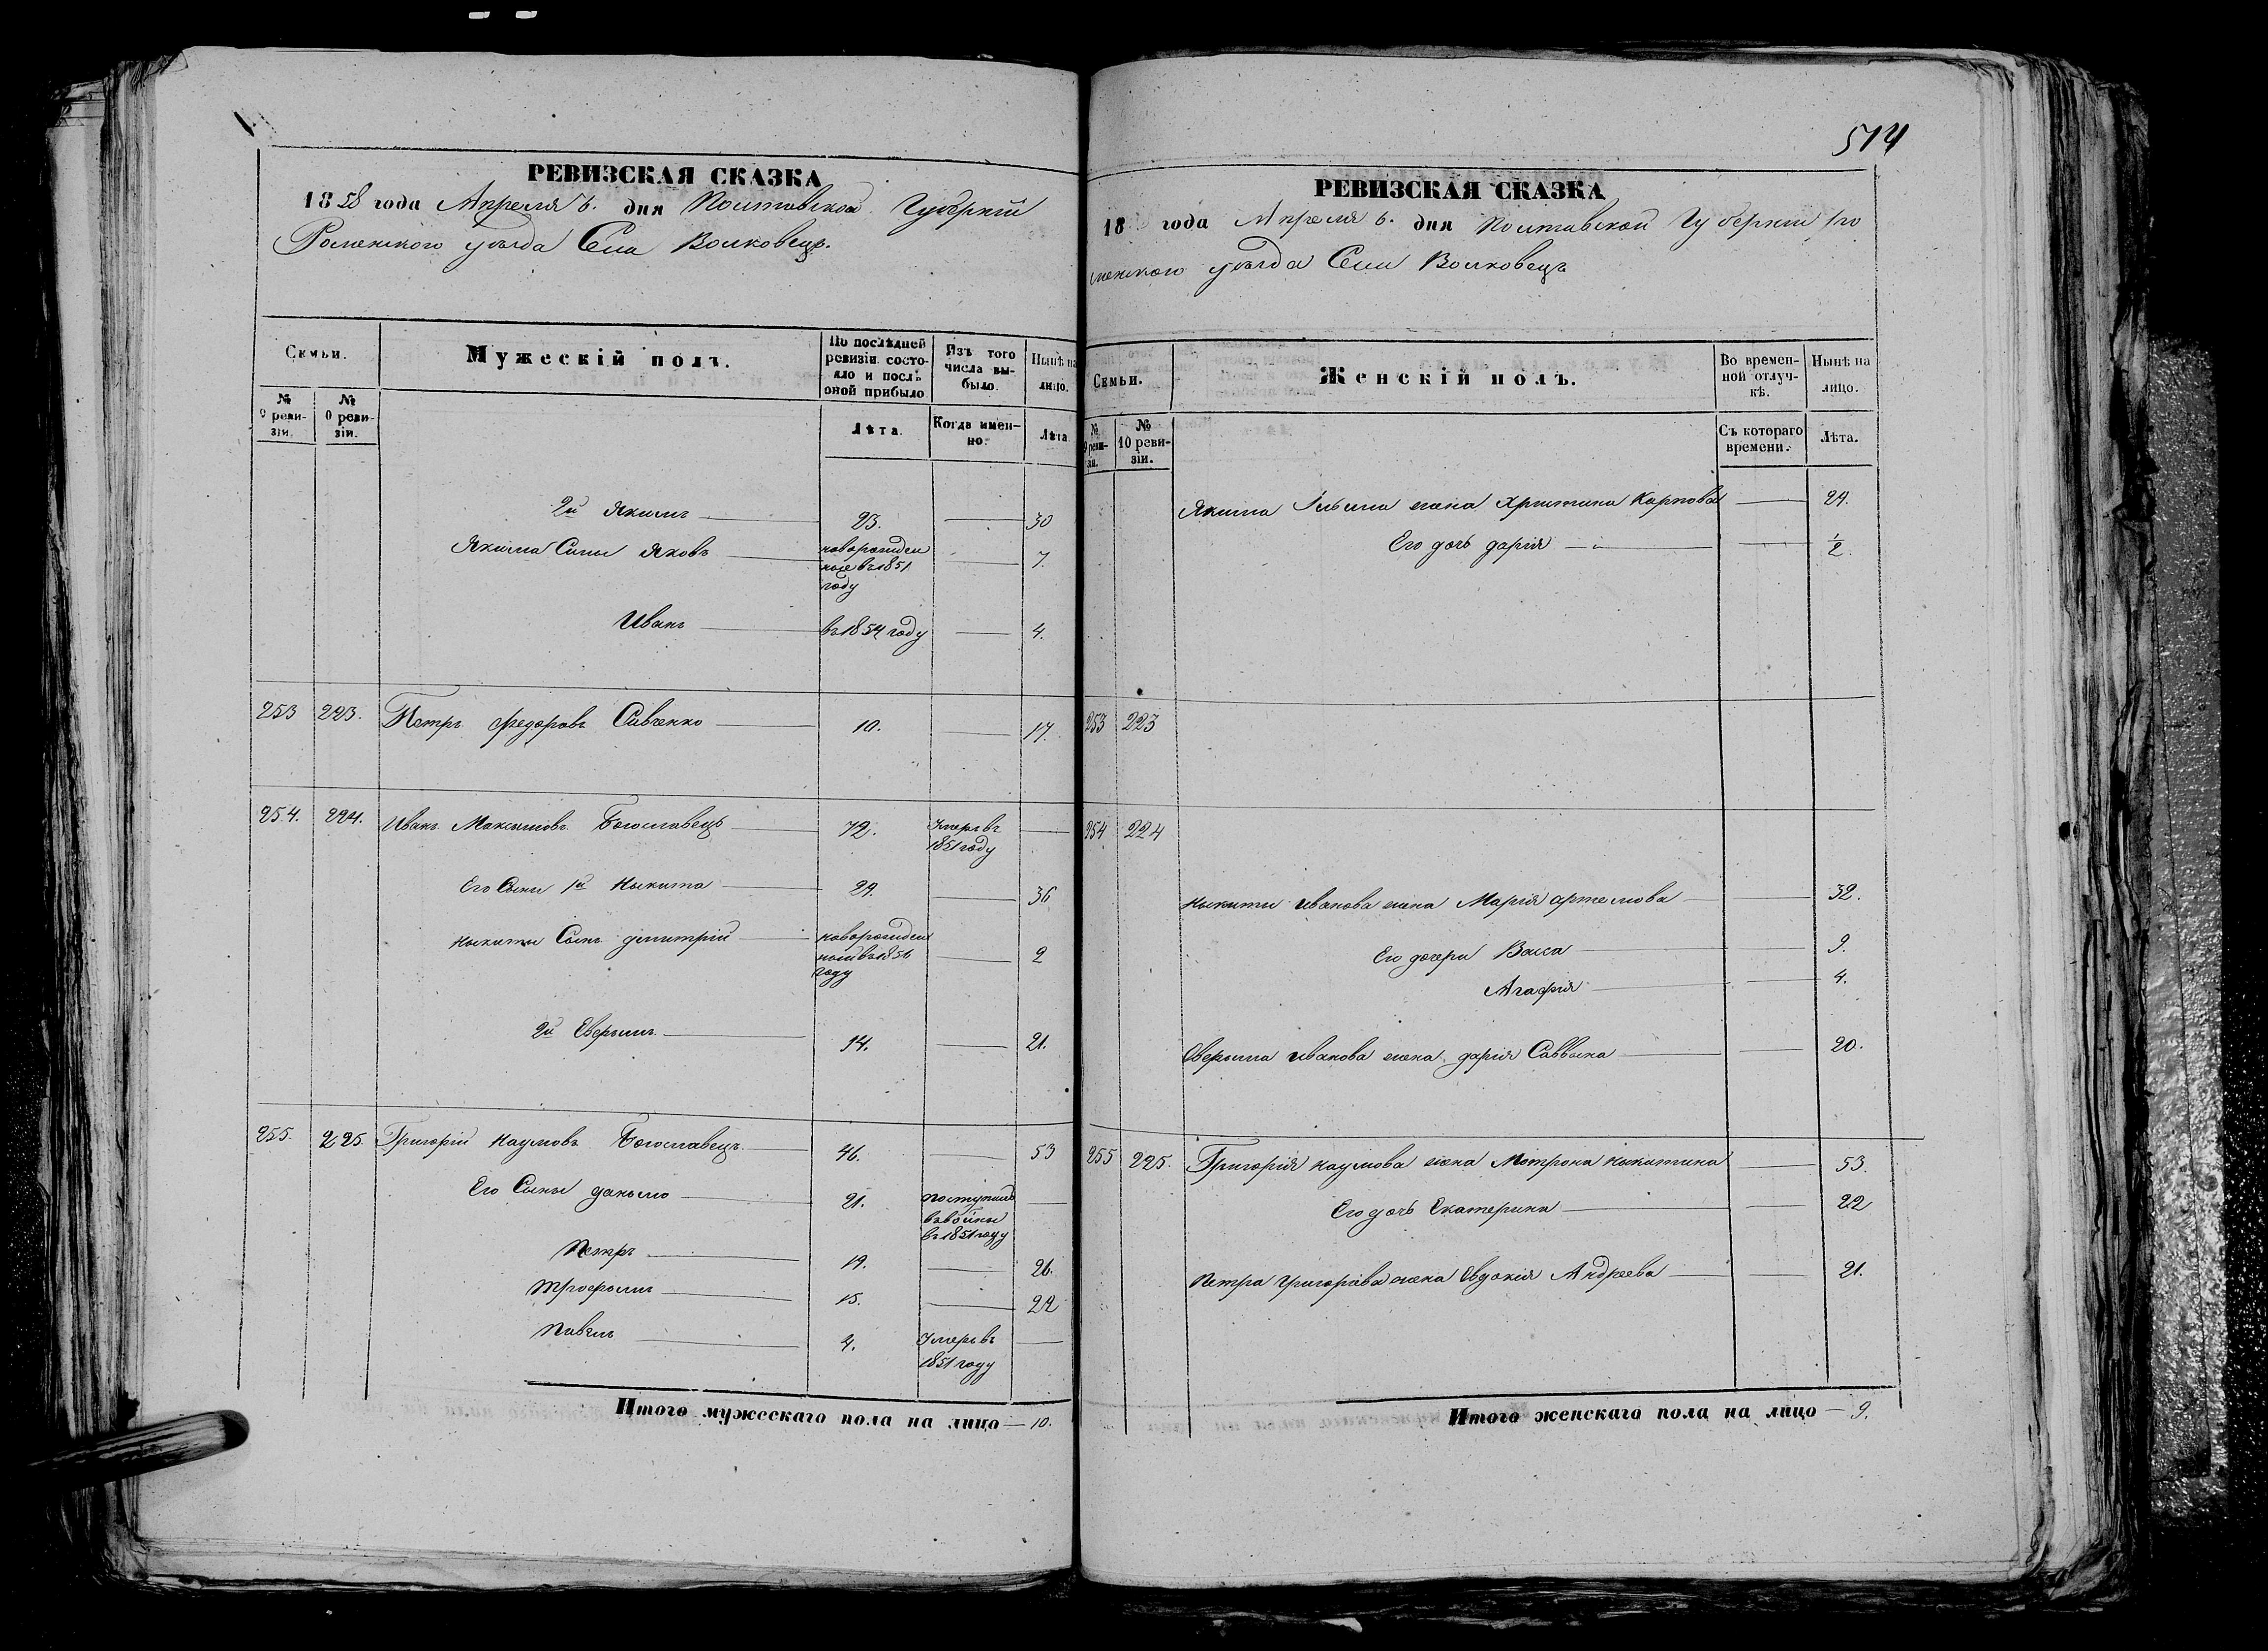 514
РЕВИЗСКАЯ СКАЗКА
1858 года Апреля 6. дня Полтавской Губерніи
Роменского уѣзда Села Волковецъ.
Семьи.
Мужескій полъ.
По послѣдней ревизіи состояло и послѣ оной прибыло
Изъ того числа выбыло.
Нынѣ на лицо.
№ 9 ревизіи.
№ 0 ревизіи.
Лѣта.
Когда именно.
Лѣта
2й Якимъ 23. 30
Якима Сыны Яковъ новорожденные въ 1851 году 7.
Иванъ въ 1854 году 4.
253 223. Петръ Федоровъ Сивченко 10. 17.
254. 224. Иванъ Максимовъ Богославецъ 72. Умеръ въ 1851 году
Его Сыны 1й Никита 29. 36
Никиты Сынъ Дмитрій новорожденный въ 1856 году 2
2й Свержинъ 14. 21.
255. 225 Григорій Наумовъ Богославецъ 46. 53
Его Сыны Данило 21. поступилъ въ войны въ 1851 году
Петръ 19. 26.
Трофимъ 15. 22
Павелъ 4. Умеръ въ 1851 году
Итого мужескаго пола на лицо 10.
РЕВИЗСКАЯ СКАЗКА
18 года Апреля 6. дня Полтавской Губерніи Ро
менского уѣзда Села Волковецъ
Семьи.
Женскій полъ.
Во временной отлучкѣ.
Нынѣ на лицо.
№ 9 ревизіи.
№ 10 ревизіи.
Съ котораго времени.
Лѣта.
Якима Ильина жена Христина Карпова 29.
Его дочь Дарія 1/2.
253 223
254 224
Никиты Иванова жена Марія Артемова 32.
Его дочери Васса 9.
Агафія 4.
Иванова жена Дарія Саввина 20.
255 225. Григорія Наумова жена Мотрона Никитина 53.
Его дочь Екатерина 22
Петра Григорьева жена Евдокія Андреева 21.
Итого женскаго пола на лицо 9.